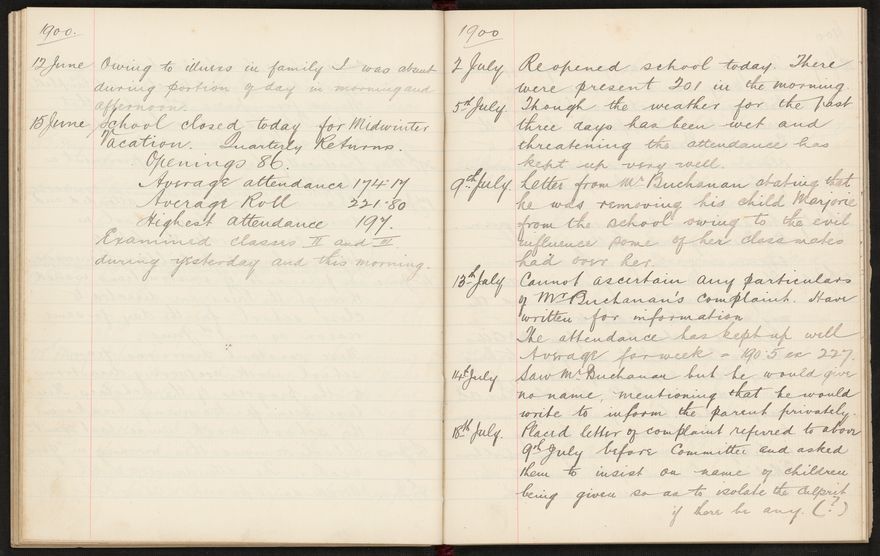 1900.
12 June Owing to illness in family I was absent
during portion of day in morning and
afternoon.
15 June School closed today for Midwinter
Vacation. Quarterly Returns.
Openings 86.
Average attendance 174.17
Average Roll 221.80
Highest attendance 197.
Examined classes II and III
during yesterday and this morning.
1900
2 July Reopened school today. There
were present 201 in the morning.
5th July Though the weather for the past
three days has been wet and
threatening the attendance has
kept up very well.
9th July. Letter from Mr Buchanan stating that
he was removing his child Marjorie
from the school owing to the evil
influence some of her classmates
had over her.
13th July Cannot ascertain any particulars
of Mr Buchanan's complaint. Have
written for information
The attendance has kept up well
Average for week = 190.5 ex 227.
14th July Saw Mr Buchanan but he would give
no name, mentioning that he would
write to inform the parent privately.
18th July. Placed letter of complaint referred to above
9th July before Committee and asked
them to insist on name of children
being given so as to isolate the culprit
if there be any. (?)